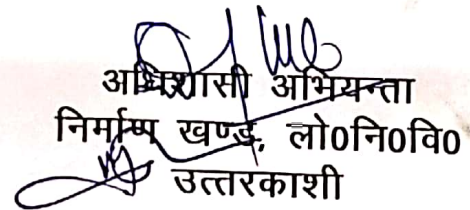 अधिशासी अभियन्ता
निर्माण खण्ड, लो0नि0वि0
उत्तरकाशी